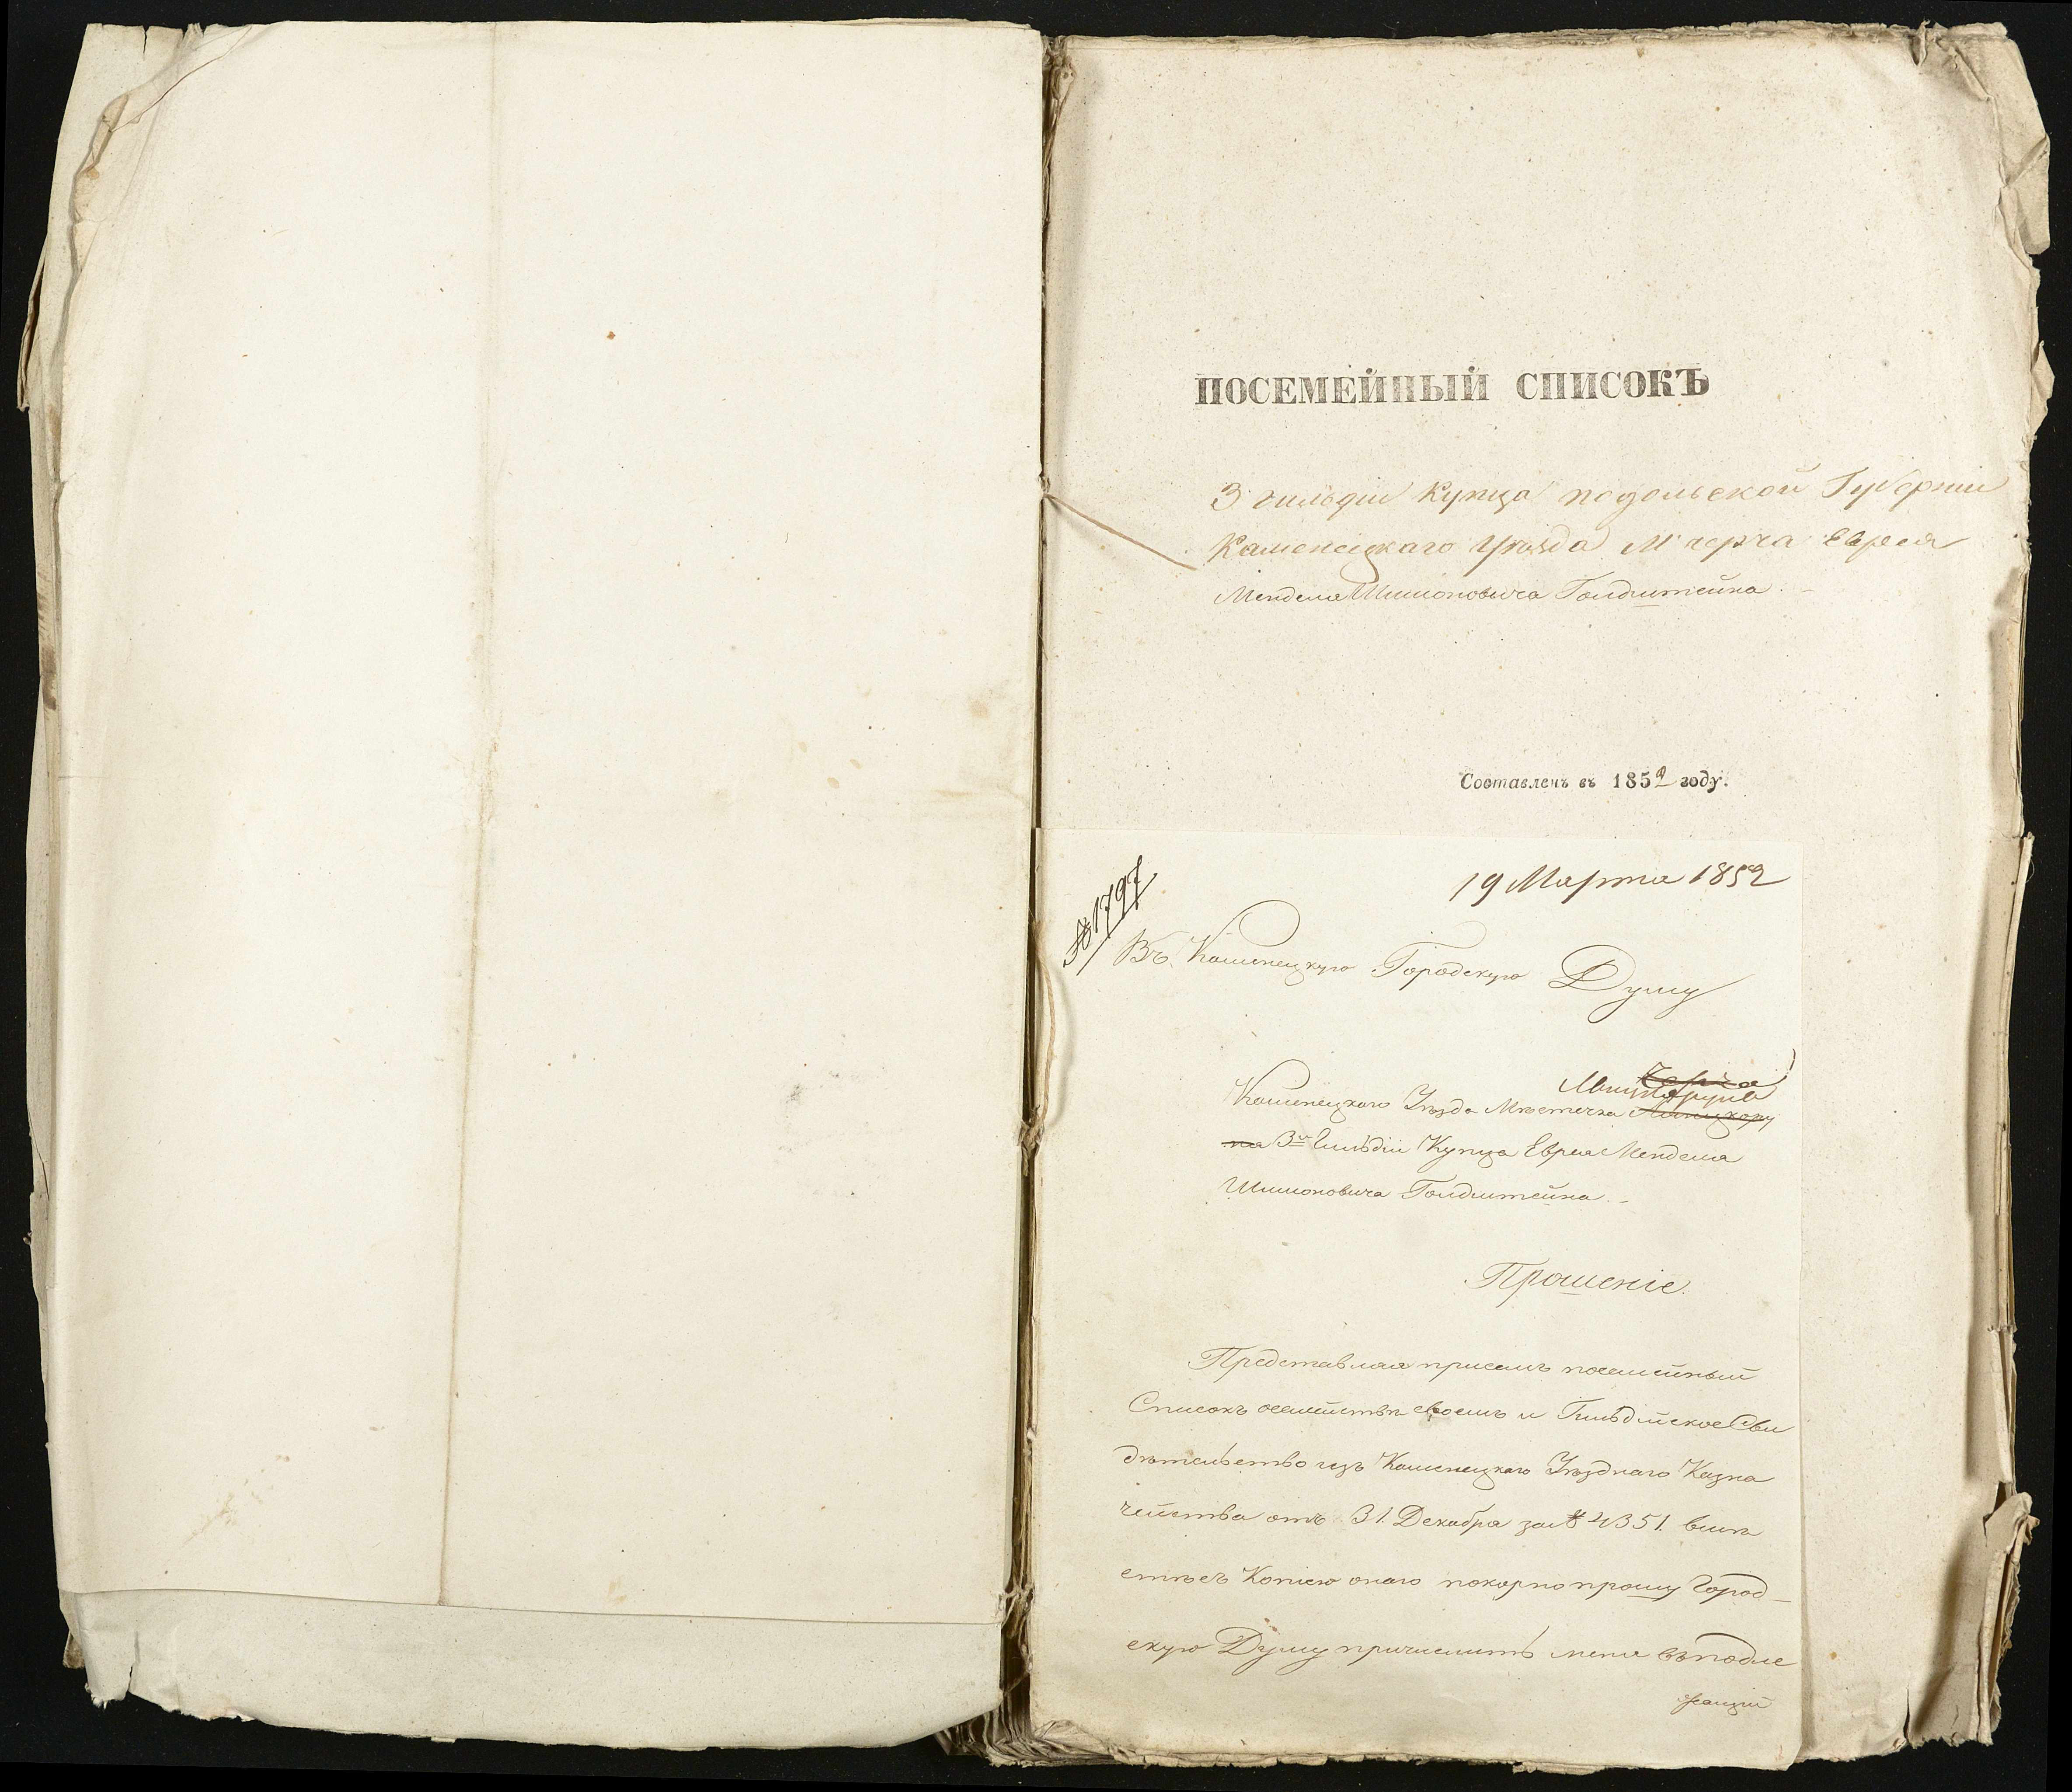 ПОСЕМЕЙНЫЙ СПИСОКЪ
3 гильдіи Купца подольской Губерніи
Каменецкаго Уѣзда М черча Еврея
Менделя Шимоновича Голдштейна.
Составленъ въ 1852 году.
19 Марта 1852
№ 1797
Въ Каменецкую Городскую Думу
Каменецкаго Уѣзда Мѣстечка
3й Гильдіи Купца Еврея Менделя
Шимоновича Голдштейна.
Прошеніе.
Представляя присемъ посемейный
Списокъ осемействѣ своемъ и Гильдійское Сви
дѣтельство изъ Каменецкаго Уѣзднаго Казна
чейства отъ 31. Декабря за № 4351. вмѣ
стѣ съ Копіею онаго покорно прошу Город-
скую Думу причислить меня въ подле
жащій